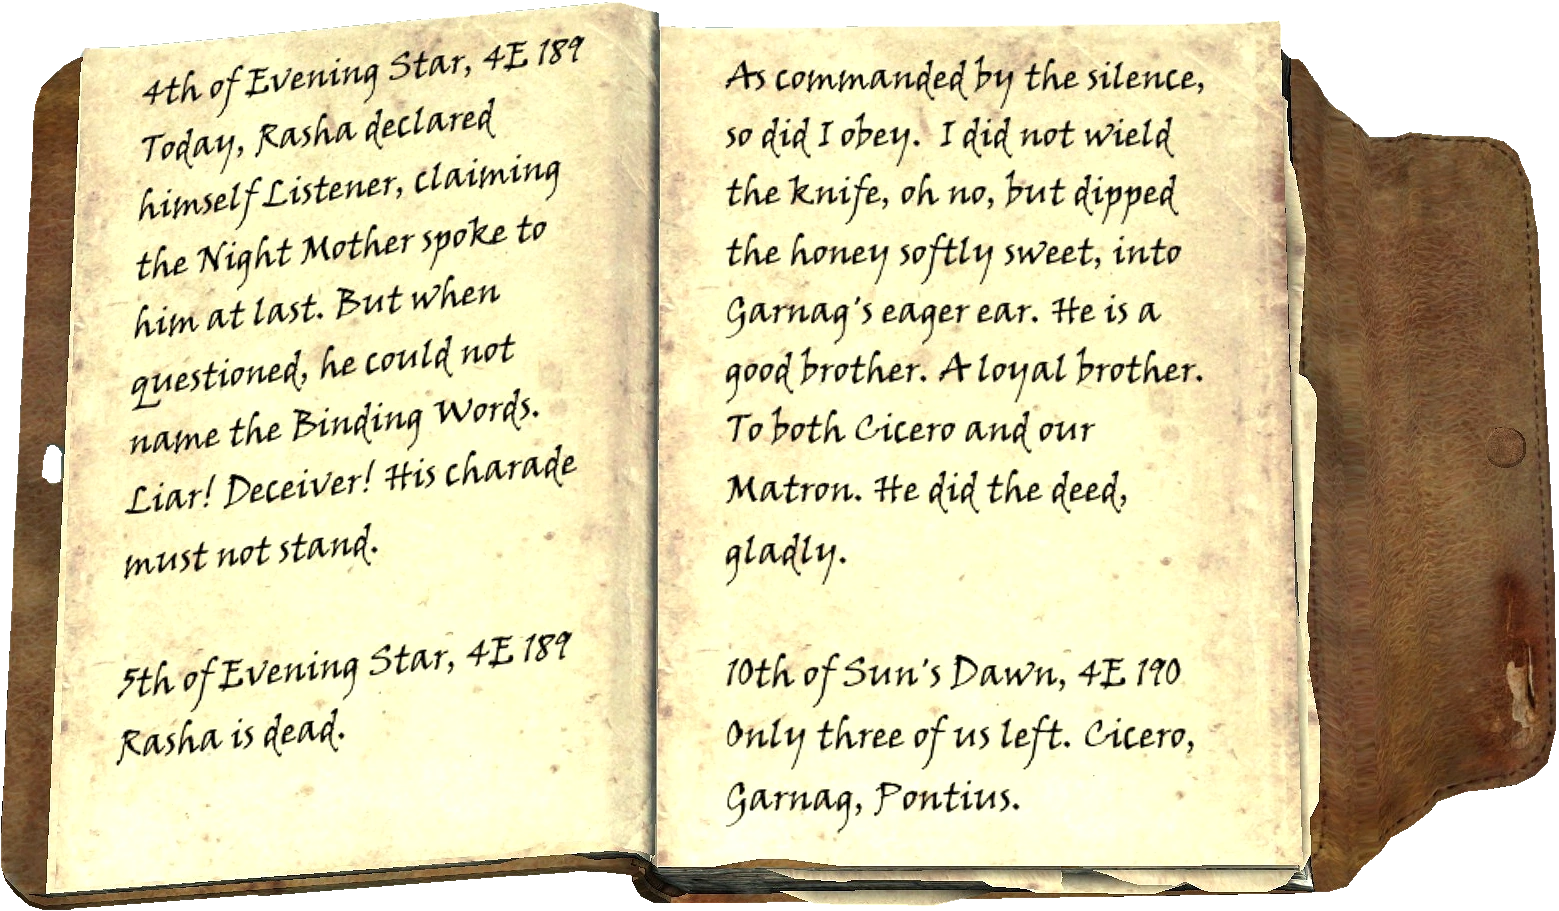 4th of Evening Star, 4E 189
Today, Rasha declared
himself Listener, claiming
the Night Mother spoke to
him at last. But when
questioned, he could not
name the Binding Words.
Liar! Deceiver! His charade
must not stand.
5th of Evening Star, 4E 189
Rasha is dead.
As commanded by the silence,
so did I obey. I did not wield
the knife, oh no, but dipped
the honey softly sweet, into
Garnag's eager ear. He is a
good brother. A loyal brother.
To both Cicero and our
Matron. He did the deed,
gladly.
10th of Sun's Dawn, 4E 190
Only three of us left. Cicero,
Garnag, Pontius.